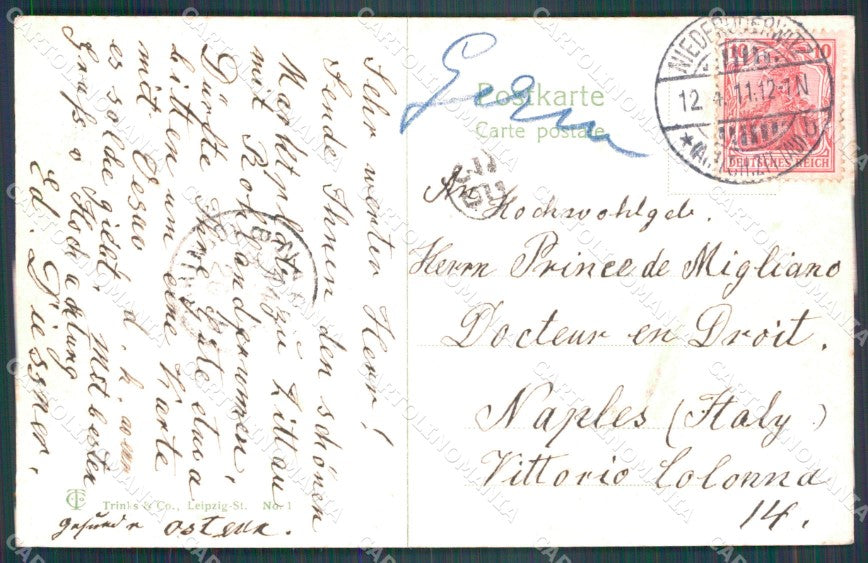 Sehr werter Herr!
Sende Ihnen den schönen
Marktplatz zu Zittau
mit Rolandbrunnen,
Dürfte Ihre Güte etwa
bitten um eine Karte
mit d. h. wenn
es solche giebt. Mit besten
Gruß u Hochachtung
Ed. Tiessner.
gesunde Ostern.
Trinks & Co., Leipzig-St. No. 1
Postkarte
Carte postale
NIEDERODERWITZ
12.4.11.12-1N
10
DEUTSCHES REICH
An
Hochwohlgeb.
Herrn Prince de Migliano
Docteur en Droit.
Naples (Italy)
Vittorio Colonna
14.
CARTOLINOMANIA